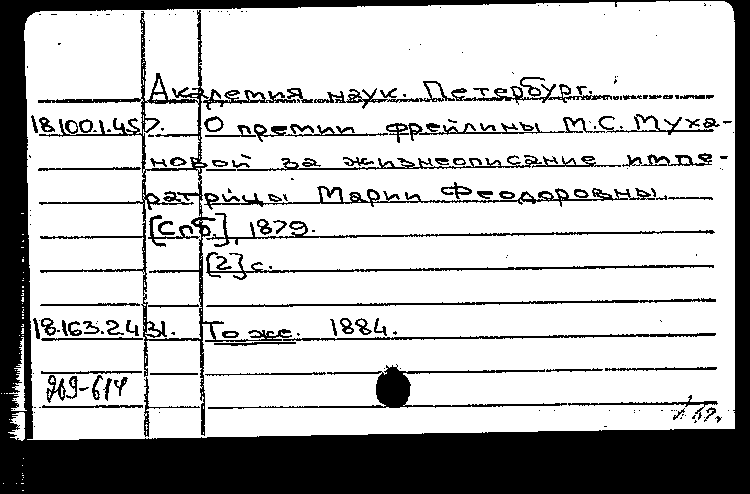 Академия наук. Петербург.
18.100.1.457. О премии фрейлины М.С. Муха-
новой за жизнеописание импе-
ратрицы Марии Феодоровны.
[Спб.], 1879.
[2] с.
18.163.2.431. То же. 1884.
269-614